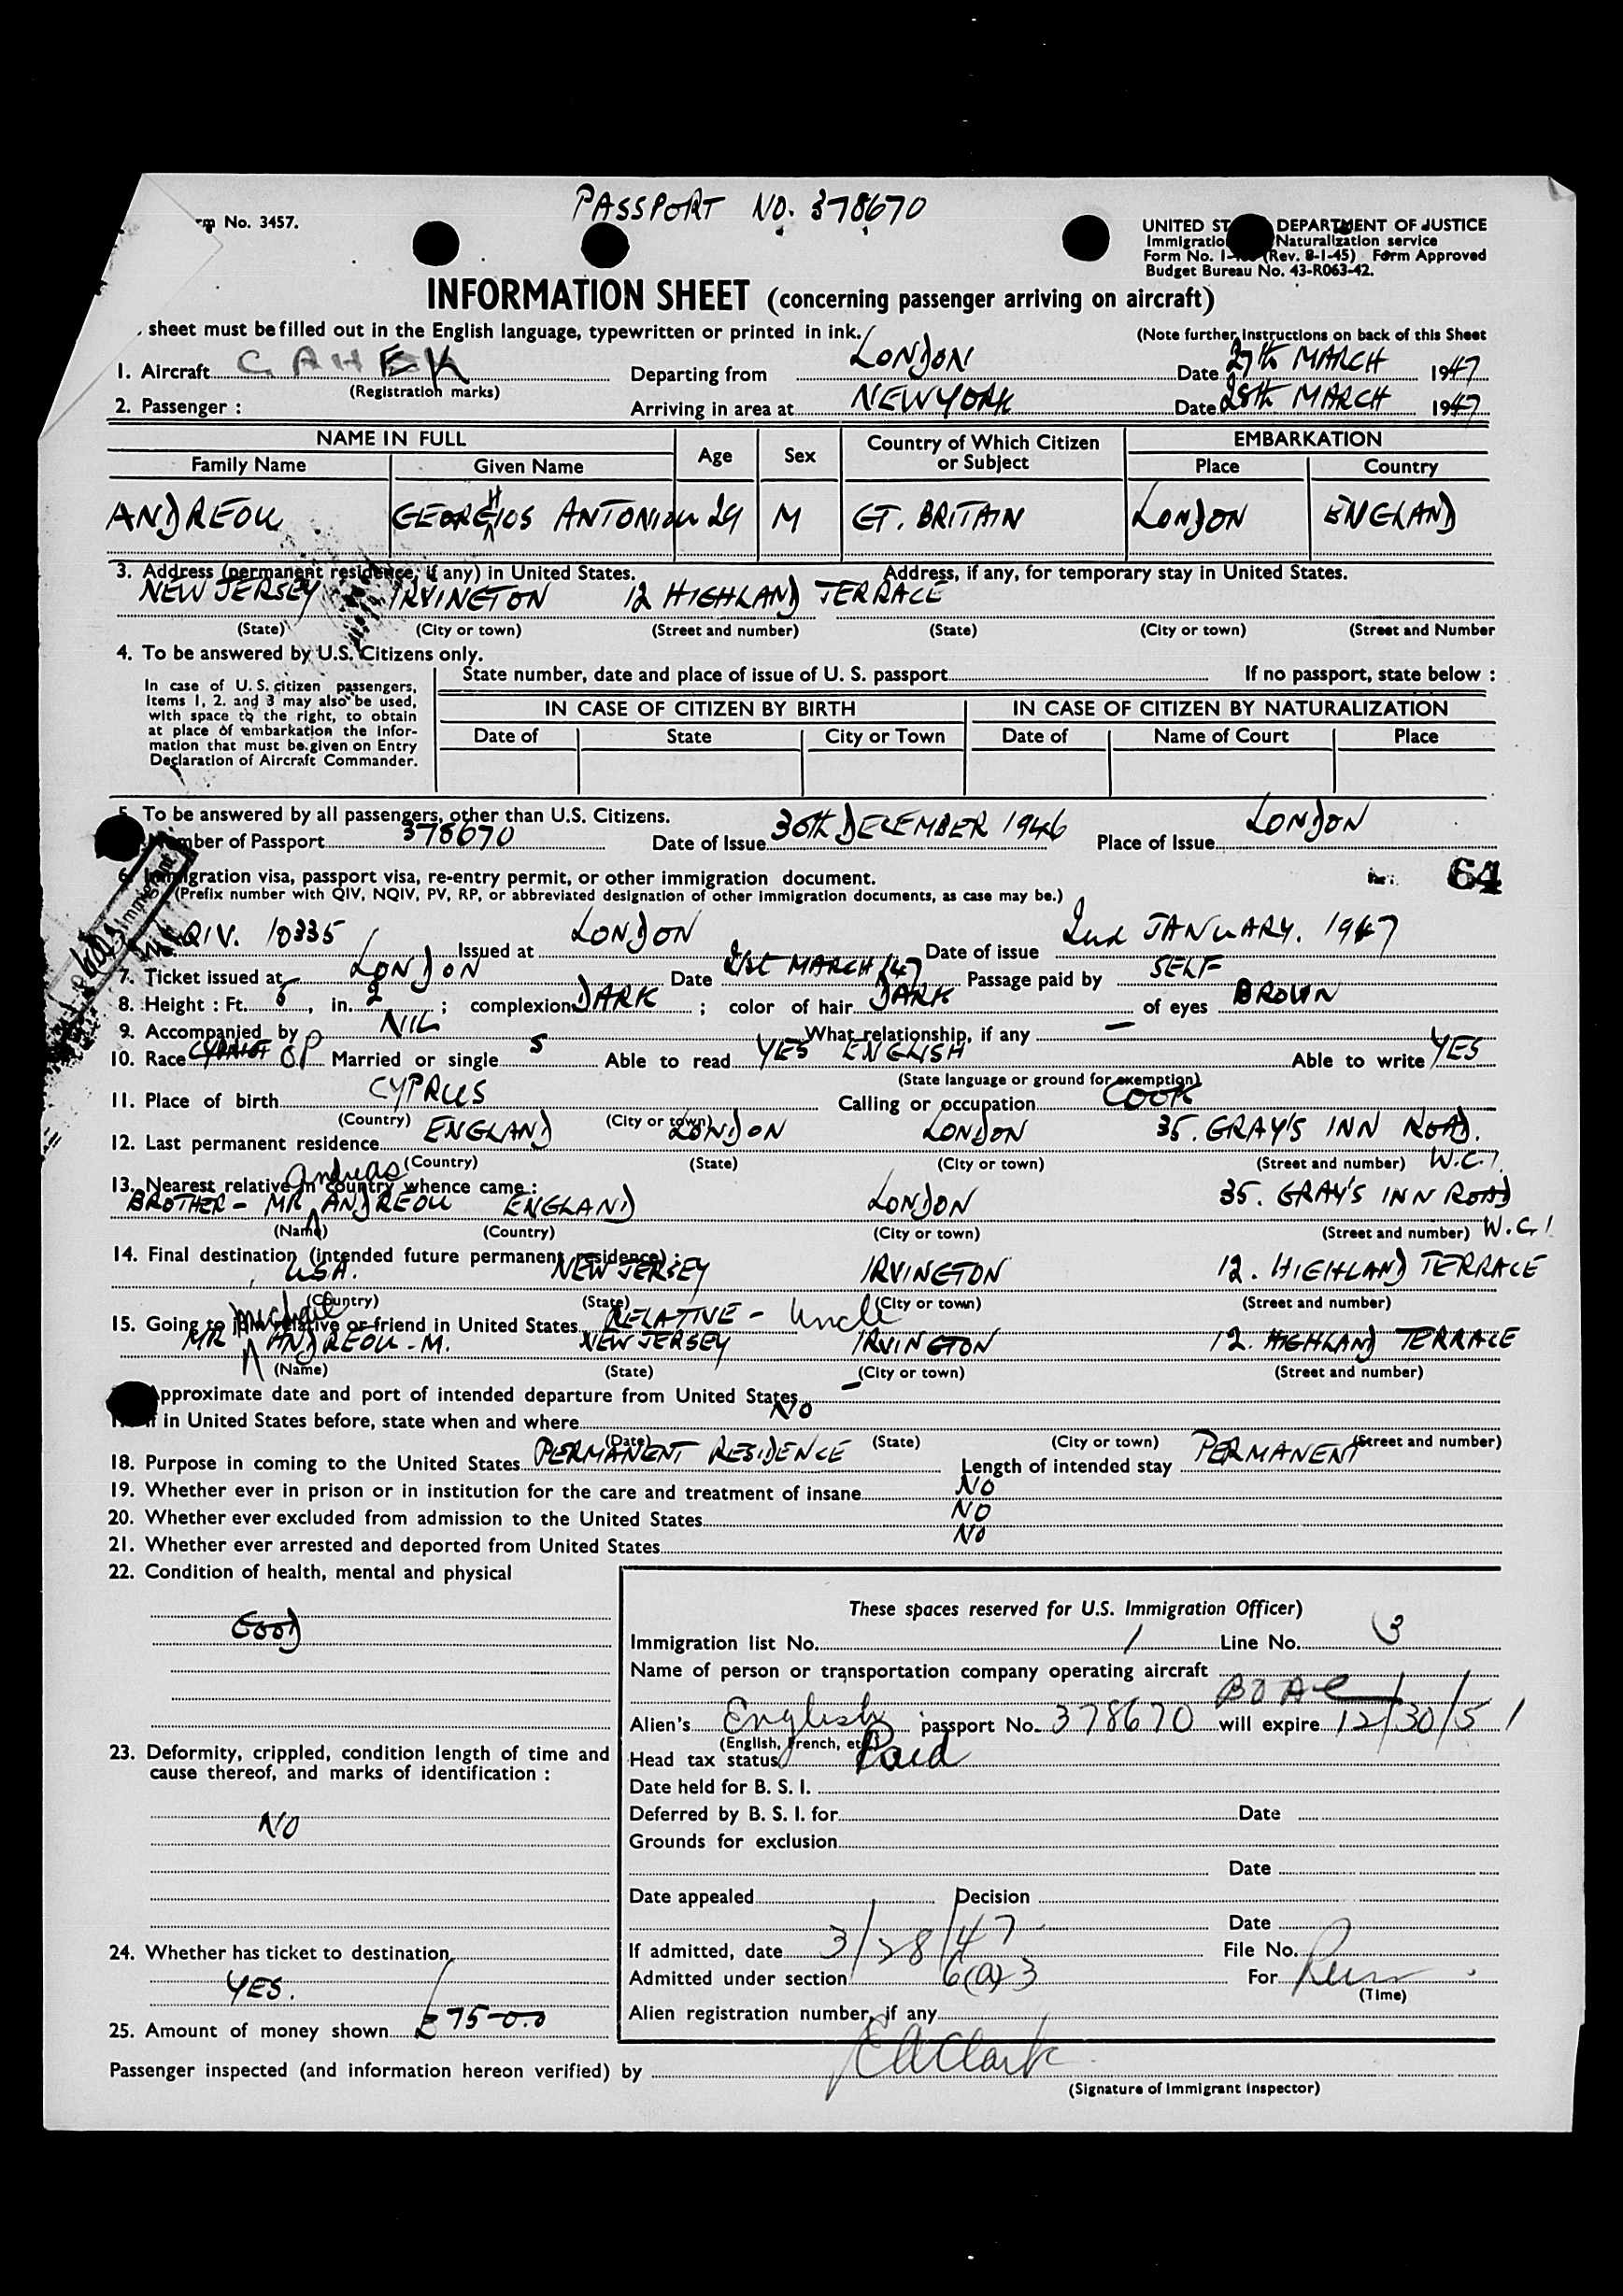 PASSPORT NO. 378670
rm No. 3457.
UNITED ST DEPARTMENT OF JUSTICE
Immigratio Naturalization service
Form No. I- (Rev. 8-1-45) Form Approved
Budget Bureau No. 43-R063-42.
INFORMATION SHEET (concerning passenger arriving on aircraft)
sheet must be filled out in the English language, typewritten or printed in ink.
(Note further instructions on back of this Sheet
1. Aircraft G AHEK Departing from LONDON Date 27th MARCH 1947
(Registration marks)
2. Passenger : Arriving in area at NEW YORK Date 28th MARCH 1947
NAME IN FULL Age Sex Country of Which Citizen or Subject EMBARKATION
Family Name Given Name Place Country
ANDREOU GEORGHIOS ANTONIOU 29 M GT. BRITAIN LONDON ENGLAND
3. Address (permanent residence, if any) in United States. Address, if any, for temporary stay in United States.
NEW JERSEY IRVINGTON 12 HIGHLAND TERRACE
(State) (City or town) (Street and number) (State) (City or town) (Street and Number
4. To be answered by U.S. Citizens only.
State number, date and place of issue of U. S. passport If no passport, state below :
In case of U. S. citizen passengers,
items 1, 2. and 3 may also be used,
with space to the right, to obtain
at place of embarkation the infor-
mation that must be given on Entry
Declaration of Aircraft Commander.
IN CASE OF CITIZEN BY BIRTH IN CASE OF CITIZEN BY NATURALIZATION
Date of State City or Town Date of Name of Court Place
5. To be answered by all passengers, other than U.S. Citizens.
mber of Passport 378670 Date of Issue 30th DECEMBER 1946 Place of Issue LONDON
64
6. Immigration visa, passport visa, re-entry permit, or other immigration document.
(Prefix number with QIV, NQIV, PV, RP, or abbreviated designation of other immigration documents, as case may be.)
QIV. 10335 Issued at LONDON Date of issue 2nd JANUARY. 1947
7. Ticket issued at LONDON Date 21st MARCH 47 Passage paid by SELF
8. Height : Ft. 5, in. 2 ; complexion DARK ; color of hair DARK of eyes BROWN
9. Accompanied by NIL What relationship, if any —
10. Race CYPRIOT OP Married or single S Able to read YES ENGLISH Able to write YES
(State language or ground for exemption)
11. Place of birth CYPRUS Calling or occupation COOK
(Country) (City or town)
12. Last permanent residence ENGLAND LONDON LONDON 35. GRAY'S INN ROAD. W.C.1.
(Country) (State) (City or town) (Street and number)
13. Nearest relative in country whence came :
BROTHER - MR Andreas ANDREOU ENGLAND LONDON 35. GRAY'S INN ROAD W.C.1
(Name) (Country) (City or town) (Street and number)
14. Final destination (intended future permanent residence) :
U.S.A. NEW JERSEY IRVINGTON 12. HIGHLAND TERRACE
(Country) (State) (City or town) (Street and number)
15. Going to join relative or friend in United States RELATIVE - Uncle
MR Michael ANDREOU - M. NEW JERSEY IRVINGTON 12. HIGHLAND TERRACE
(Name) (State) (City or town) (Street and number)
pproximate date and port of intended departure from United States —
if in United States before, state when and where NO
(Date) (State) (City or town) (Street and number)
18. Purpose in coming to the United States PERMANENT RESIDENCE Length of intended stay PERMANENT
19. Whether ever in prison or in institution for the care and treatment of insane NO
20. Whether ever excluded from admission to the United States NO
21. Whether ever arrested and deported from United States NO
22. Condition of health, mental and physical
GOOD
23. Deformity, crippled, condition length of time and
cause thereof, and marks of identification :
NO
24. Whether has ticket to destination
YES.
25. Amount of money shown £75-0-0
These spaces reserved for U.S. Immigration Officer)
Immigration list No. 1 Line No. 3
Name of person or transportation company operating aircraft
BOAC
Alien's English passport No. 378670 will expire 12/30/51
(English, French, etc.)
Head tax status Paid
Date held for B. S. I.
Deferred by B. S. I. for Date
Grounds for exclusion
Date
Date appealed Decision
Date
If admitted, date 3/28/47 File No.
Admitted under section 6(a)3 For Perm
(Time)
Alien registration number, if any
Passenger inspected (and information hereon verified) by E A Clark
(Signature of Immigrant Inspector)